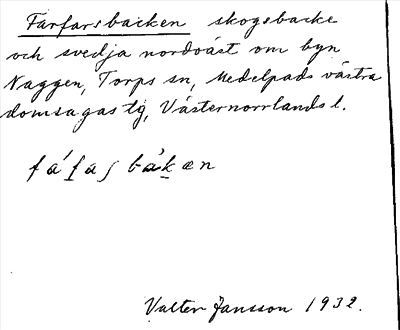 Farfarsbacken skogsbacke
och svedja nordväst om byn
Naggen, Torps sn, Medelpads västra
domsagas tg, Västernorrlands l.
Valter Jansson 1932.